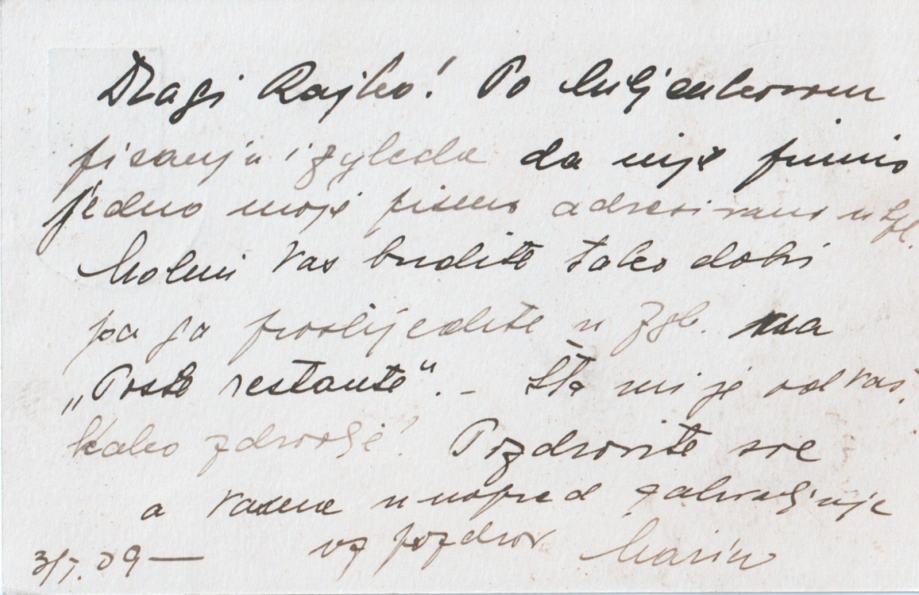 Dragi Rajko! Po Miljenkovom
pisanju izgleda da nije primio
jedno moje pismo adresirano u
Molim Vas budite tako dobri
pa ga proslijedite u Zgb. na
„Poste restante“. – Šta mi je od vas,
kako zdravlje? Pozdravite sve
a Vama unapred zahvaljuje
uz pozdrav Marin
09 —